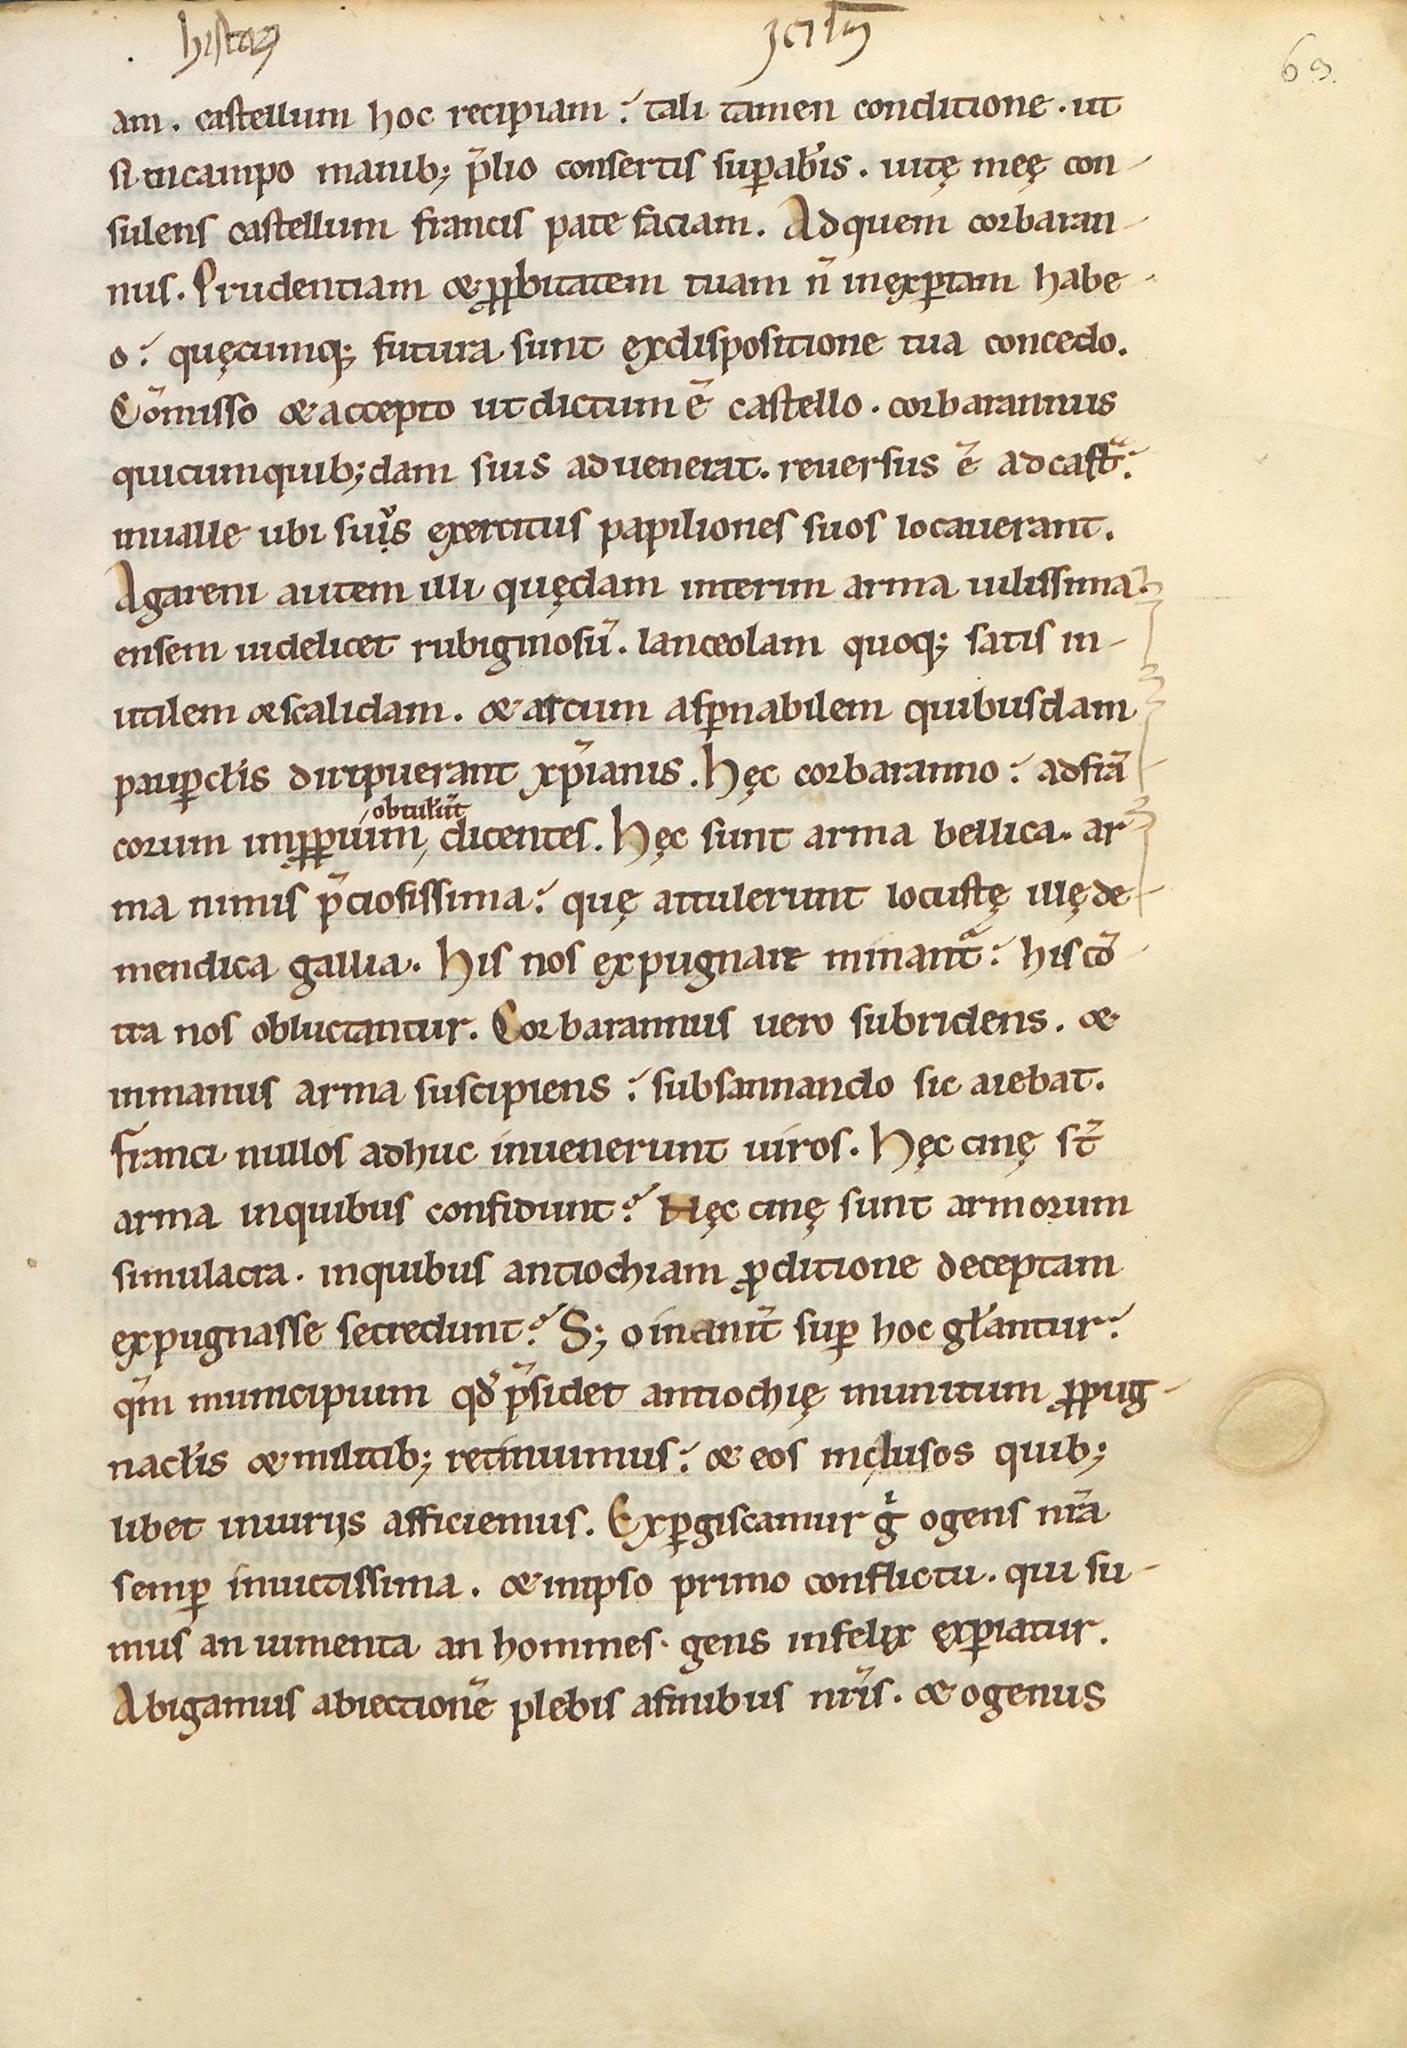 69.
am. castellum hoc recipiam? tali tamen conditione. ut
si incampo manib; p̄lio consertis sup̱abis. uitę meę con-
sulens castellum francis pate faciam. Adquem corbaran-
nus. Prudentiam & ꝓbitatem tuam n̄ inexp̱tam habe-
o? quęcumq; futura sunt exdispositione tua concedo.
Cōmisso & accepto ut dictum ē castello. corbarannus
qui cumquib;dam suis aduenerat. reuersus ē adcastᵃ?
inualle ubi suus exercitus papiliones suos locauerant.
Agareni autem illi quędam interim arma uilissima.
ensem uidelicet rubiginosū. lanceolam quoq; satis in-
utilem & scalidam. & arcum asp̱nabilem quibusdam
paup̱cl̄is diripuerant xp̄ianis. Hęc corbaranno? adfrā
corum imꝓp̱ium, obtuler̄t dicentes. Hęc sunt arma bellica. ar
ma nimis p̄ciosissima? quę attulerunt locustę illę de-
mendica gallia. His nos expugnare minantᵃ? his cō-
tra nos obluctantur. Corbarannus uero subridens. &
inmanus arma suscipiens? subsannando sic aiebat.
Franci nullos adhuc inuenerunt uiros. Hęc cinę st̄
arma inquibus confidunt? Hęc cinę sunt armorum
simulacra. inquibus antiochiam ꝓditione deceptam
expugnasse secredunt? S; o inanit̄ sup̱ hoc gl̄antur?
qm̄ municipium qd̄ p̄sidet antiochię munitum ꝓpug-
nacl̄is & militib; retinuimus? & eos inclusos quib;
libet iniuriis afficiemus. Exp̱giscamur gͥ ogens nr̄a
semp̱ inuictissima. & inipso primo conflictu. qui su-
mus an iumenta an homines. gens infelix exp̱iatur.
Abigamus abiectionē plebis afinibus nr̄is. & ogenus